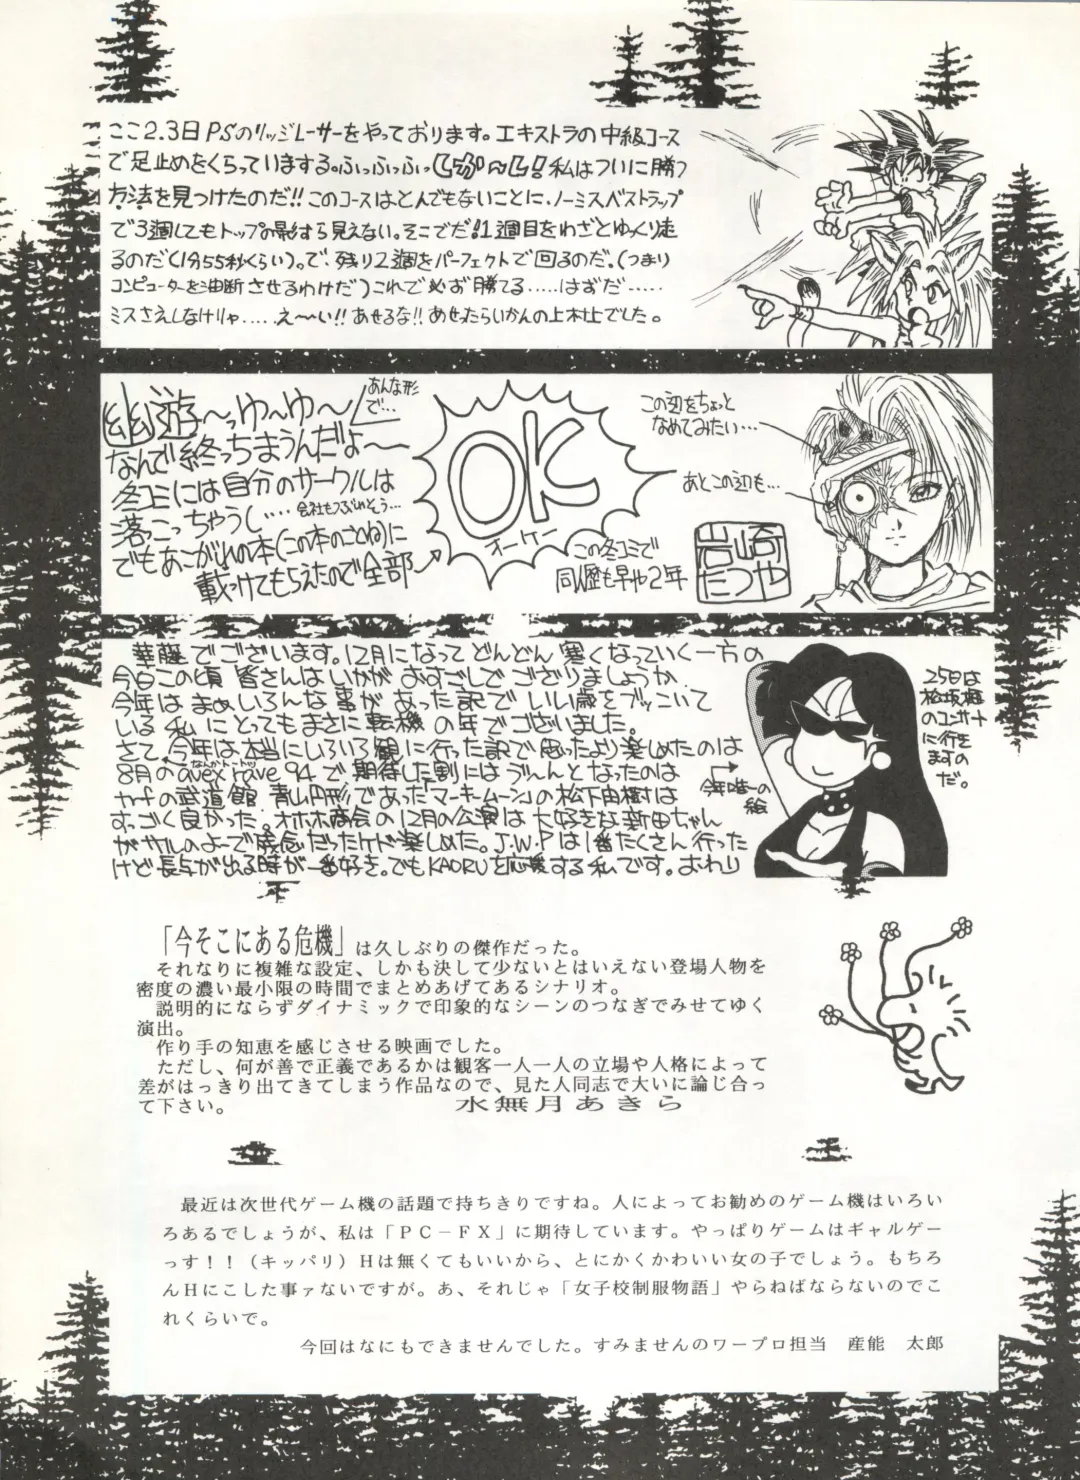 ここ2.3日PSのリッジレーサーをやっております。エキストラの中級コース
で足止めをくらっていまする。ふっふっふっしか〜し!私はついに勝つ
方法を見つけたのだ!!このコースはとんでもないことに、ノーミスベストラップ
で3週してもトップの影すら見えない。そこでだ!1週目をわざとゆっくり走
るのだ(1分55秒くらい)。で、残り2週をパーフェクトで回るのだ。(つまり
コンピューターを油断させるわけだ)これで必ず勝てる.....はずだ.....
ミスさえしなけりゃ....え〜い!!あせるな!!あせったらいかんの上本止でした。
幽遊〜っゆ〜ゆ〜
あんな形
で...
なんで終っちまうんだよ〜
冬コミには自分のサークルは
落こっちゃうし....会社もつぶれそう...
でもあこがれの本(この本のことね)に
載っけてもらえたので全部
OK
オーケー
この冬コミで
同人歴も早や2年
この辺をちょっと
なめてみたい...
あとこの辺も...
岩崎
たつや
華麗でございます。12月になってどんどん寒くなっていく一方の
今日この頃皆さんはいかがおすごしでござりましょうか。
今年はまぁいろんな事があった訳でいい歳をブッこいて
いる私にとってもまさに転機の年でございました。
さて、今年は本当にいろいろ観に行った訳で思ったより楽しめたのは
8月のavex rave 94で期待した割にはう〜んとなったのは
の武道館、青山円形であった「マーキームーン」の松下由樹は
すっごく良かった。オホホ商会の12月の公演は大好きな新田ちゃん
がサルのよーで残念だったケド楽しめた。J.W.Pは1番たくさん行った
けど長与が出る時が一番好き。でもKAORUを応援する私です。おわり
今年唯一の
絵
25日は
松坂
のコンサート
に行き
ますの
だ。
「今そこにある危機」は久しぶりの傑作だった。
それなりに複雑な設定、しかも決して少ないとはいえない登場人物を
密度の濃い最小限の時間でまとめあげてあるシナリオ。
説明的にならずダイナミックで印象的なシーンのつなぎでみせてゆく
演出。
作り手の知恵を感じさせる映画でした。
ただし、何が善で正義であるかは観客一人一人の立場や人格によって
差がはっきり出てきてしまう作品なので、見た人同志で大いに論じ合っ
て下さい。 水無月あきら
最近は次世代ゲーム機の話題で持ちきりですね。人によってお勧めのゲーム機はいろい
ろあるでしょうが、私は「PC−FX」に期待しています。やっぱりゲームはギャルゲー
っす!!(キッパリ)Hは無くてもいいから、とにかくかわいい女の子でしょう。もちろ
んHにこした事ァないですが。あ、それじゃ「女子校制服物語」やらねばならないのでこ
れくらいで。
今回はなにもできませんでした。すみませんのワープロ担当 産能 太郎